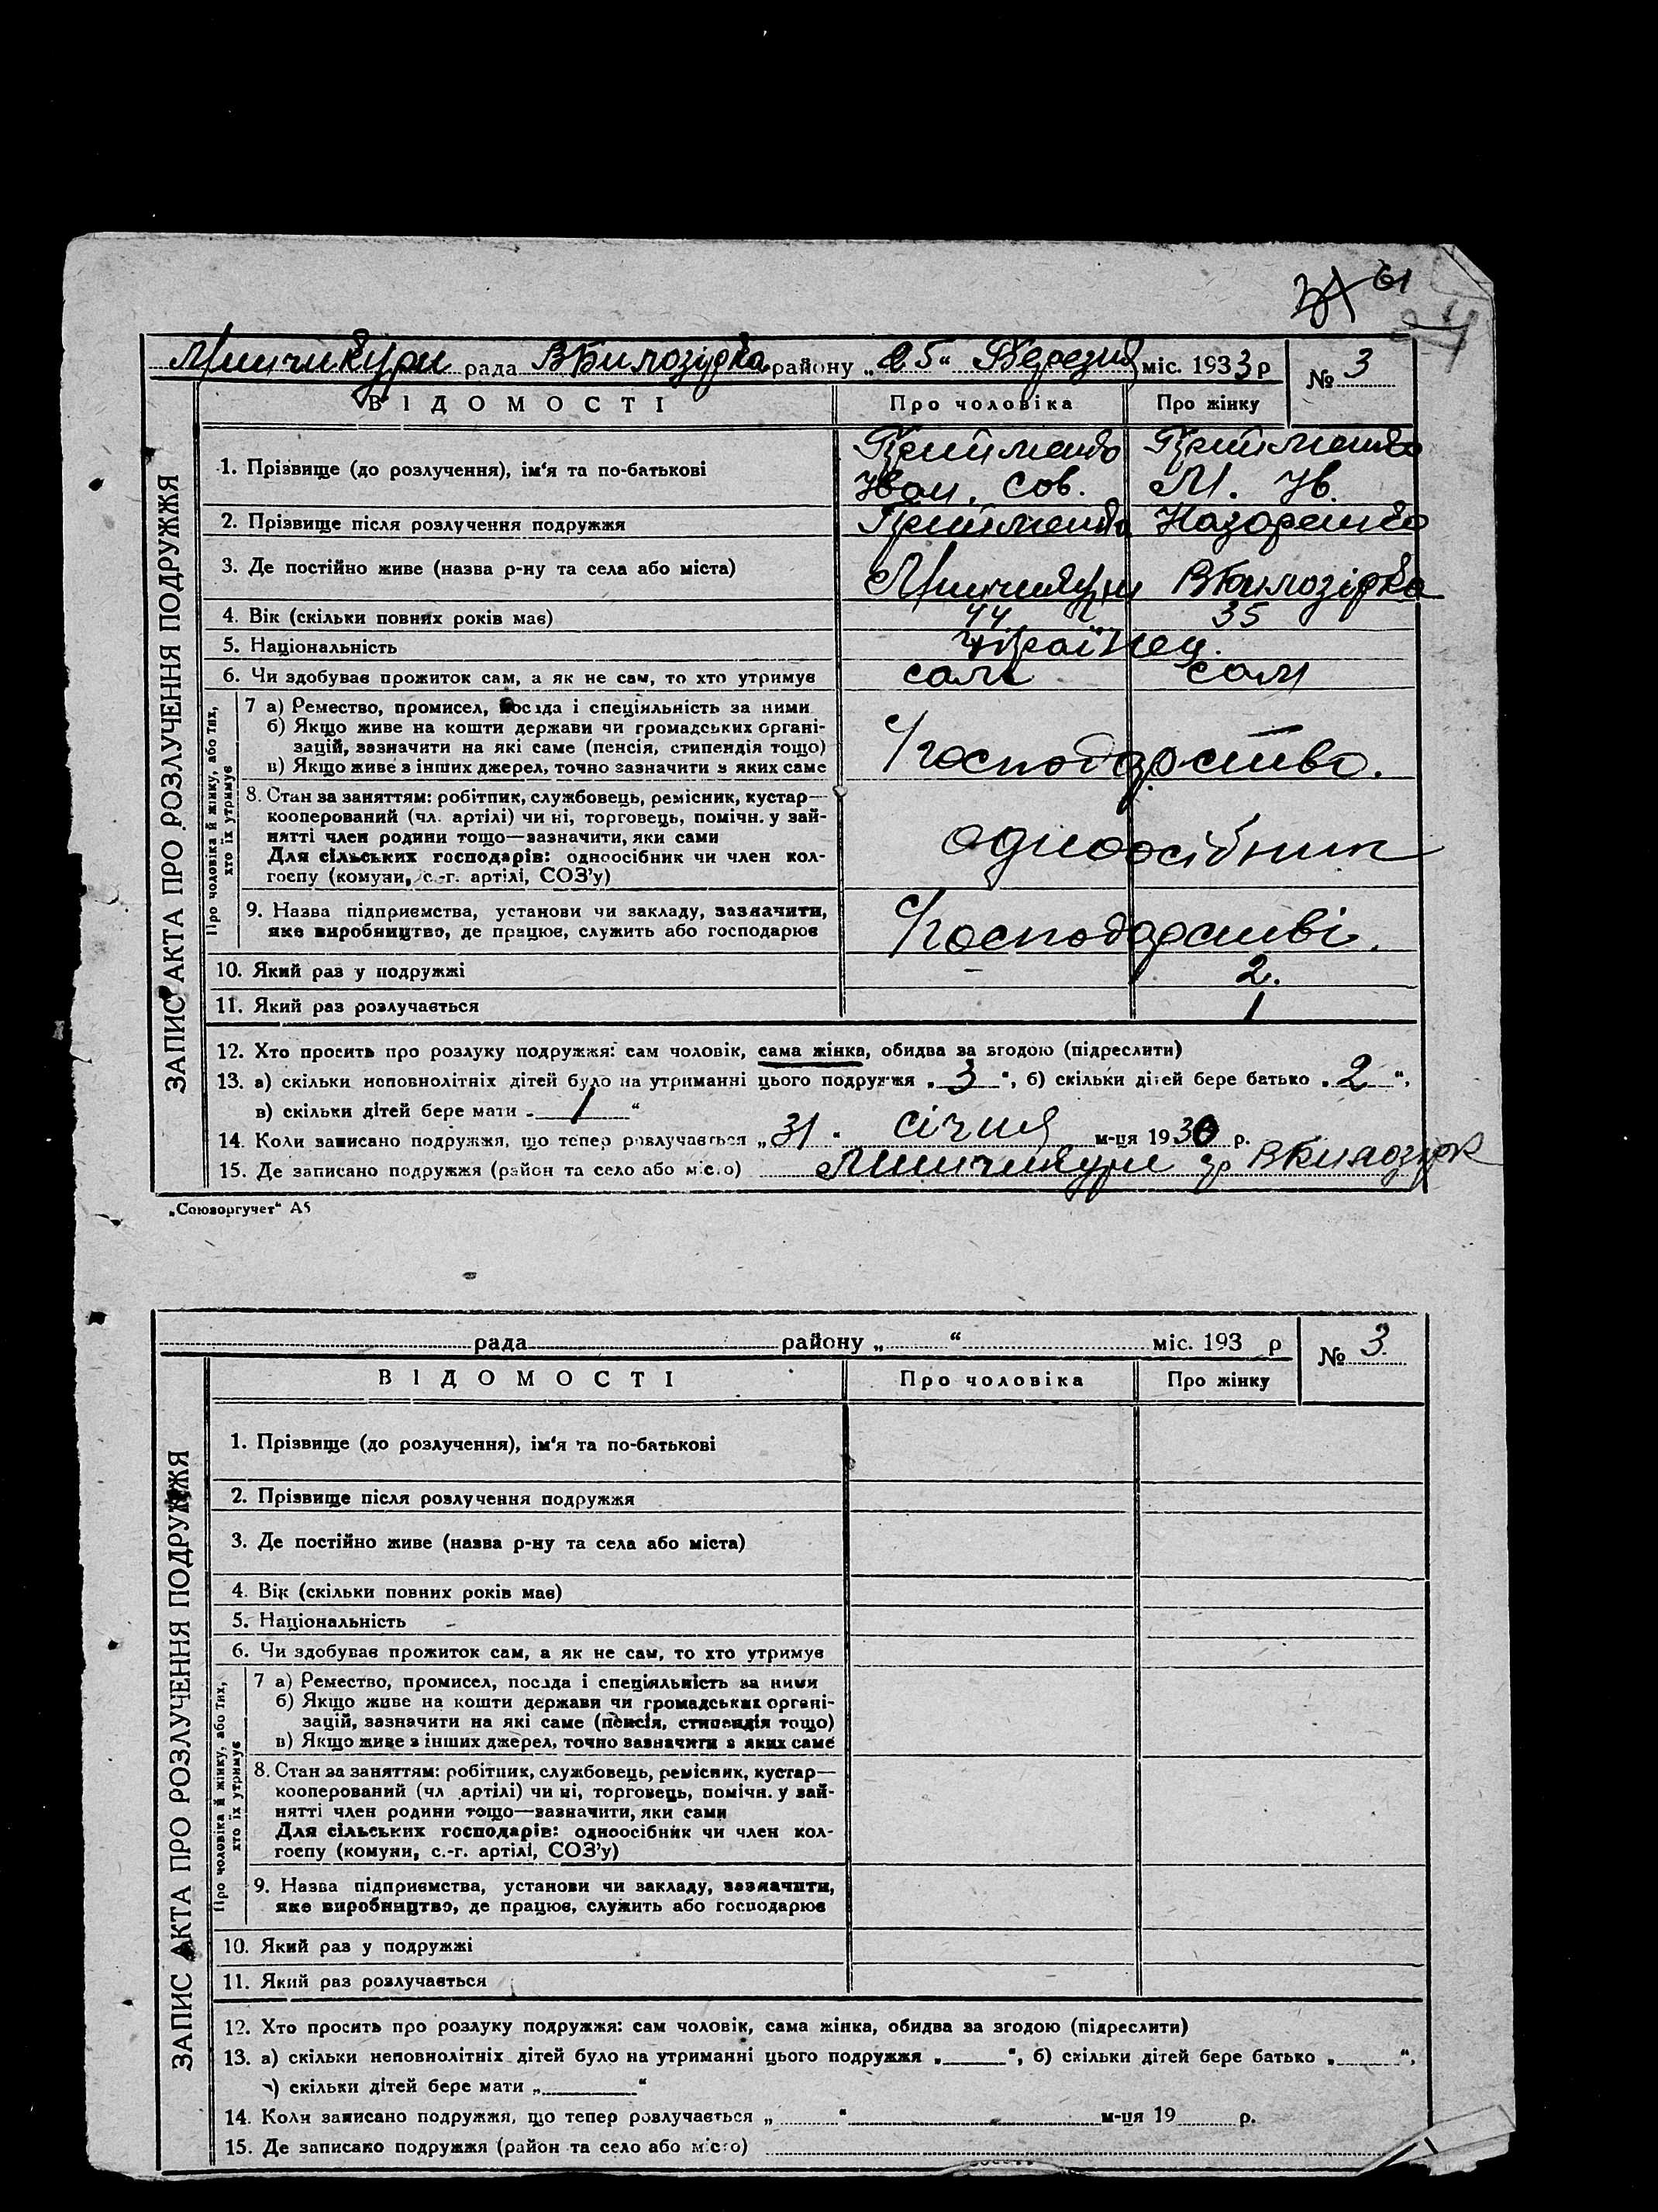 61
Мшчикури рада ВБилозірка району „25“ Березня міс. 1933 р № 3
ВІДОМОСТІ Про чоловіка Про жінку
ЗАПИС АКТА ПРО РОЗЛУЧЕННЯ ПОДРУЖЖЯ
1. Прізвище (до розлучення), ім'я та по-батькові Прийменко Прийменко
Іван. Сов. М. Ів.
2. Прізвище після розлучення подружжя Прийменко Назаренко
3. Де постійно живе (назва р-ну та села або міста) ВБилозірка
4. Вік (скільки повних років має) 44 35
5. Національність Українец.
6. Чи здобуває прожиток сам, а як не сам, то хто утримує сам сам
Про чоловіка й жінку, або тих,
хто їх утримує
7 а) Ремество, промисел, посада і спеціяльність за ними
б) Якщо живе на кошти держави чи громадських органі-
зацій, зазначити на які саме (пенсія, стипендія тощо)
в) Якщо живе з інших джерел, точно зазначити з яких саме
с/господарство.
8. Стан за заняттям: робітник, службовець, ремісник, кустар—
кооперований (чл. артілі) чи ні, торговець, помічн. у зай-
нятті член родини тощо—зазначити, яки сами
Для сільських господарів: одноосібник чи член кол-
госпу (комуни, с.-г. артілі, СОЗ'у)
одноосібник
9. Назва підприємства, установи чи закладу, зазначити,
яке виробництво, де працює, служить або господарює
с/господарстві.
10. Який раз у подружжі - 2.
11. Який раз розлучається 1
12. Хто просить про розлуку подружжя: сам чоловік, сама жінка, обидва за згодою (підреслити)
13. а) скільки неповнолітніх дітей було на утриманні цього подружжя „3“, б) скільки дітей бере батько „2“,
в) скільки дітей бере мати „1“
14. Коли записано подружжя, що тепер розлучається „31“ січня м-ця 1930 р.
15. Де записано подружжя (район та село або місто)
„Союзоргучет“ А5
рада району „ “ міс. 193 р № 3.
ВІДОМОСТІ Про чоловіка Про жінку
ЗАПИС АКТА ПРО РОЗЛУЧЕННЯ ПОДРУЖЖЯ
1. Прізвище (до розлучення), ім'я та по-батькові
2. Прізвище після розлучення подружжя
3. Де постійно живе (назва р-ну та села або міста)
4. Вік (скільки повних років має)
5. Національність
6. Чи здобуває прожиток сам, а як не сам, то хто утримує
Про чоловіка й жінку, або тих,
хто їх утримує
7 а) Ремество, промисел, посада і спеціяльність за ними
б) Якщо живе на кошти держави чи громадських органі-
зацій, зазначити на які саме (пенсія, стипендія тощо)
в) Якщо живе з інших джерел, точно зазначити з яких саме
8. Стан за заняттям: робітник, службовець, ремісник, кустар—
кооперований (чл артілі) чи ні, торговець, помічн. у зай-
нятті член родини тощо—зазначити, яки сами
Для сільських господарів: одноосібник чи член кол-
госпу (комуни, с.-г. артілі, СОЗ'у)
9. Назва підприємства, установи чи закладу, зазначити,
яке виробництво, де працює, служить або господарює
10. Який раз у подружжі
11. Який раз розлучається
12. Хто просить про розлуку подружжя: сам чоловік, сама жінка, обидва за згодою (підреслити)
13. а) скільки неповнолітніх дітей було на утриманні цього подружжя „ “, б) скільки дітей бере батько „ “,
в) скільки дітей бере мати „ “
14. Коли записано подружжя, що тепер розлучається „ “ м-ця 19 р.
15. Де записано подружжя (район та село або місто)